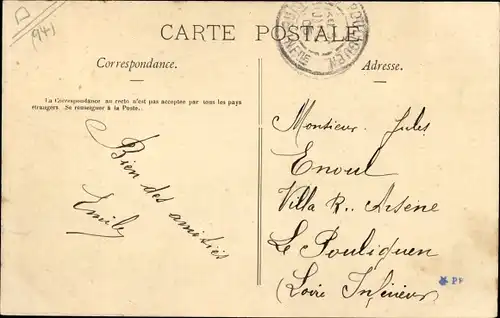 (94)
CARTE POSTALE
Correspondance.
Adresse.
La Correspondance au recto n'est pas acceptée par tous les pays
étrangers. Se renseigner à la Poste.
Bien des amitiés
Emily
Monsieur Jules
Enoul
Villa R.. Arsène
Le Pouliguen
(Loire Inférieure